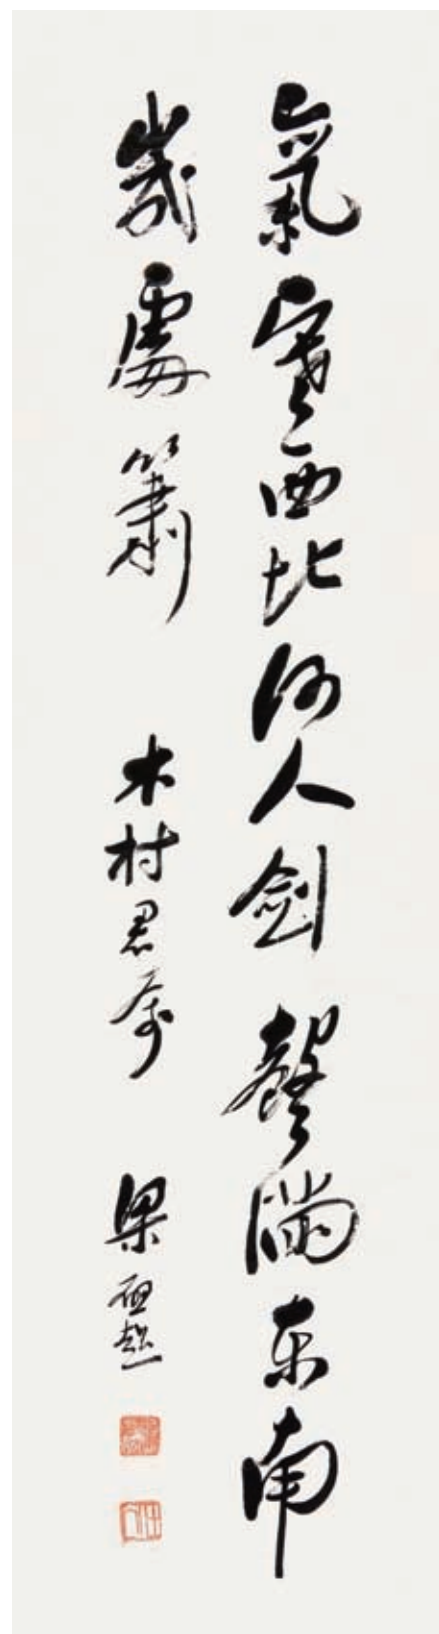 氣寒西北何人劍聲滿東南
幾處簫 木村君 梁啟超